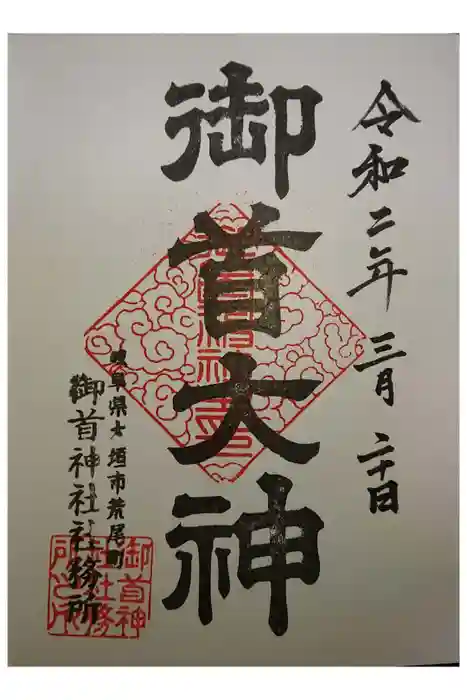 令和二年三月二十日
御首大神
岐阜県大垣市荒尾町
御首神社社務所
御首神
社社務
所之印